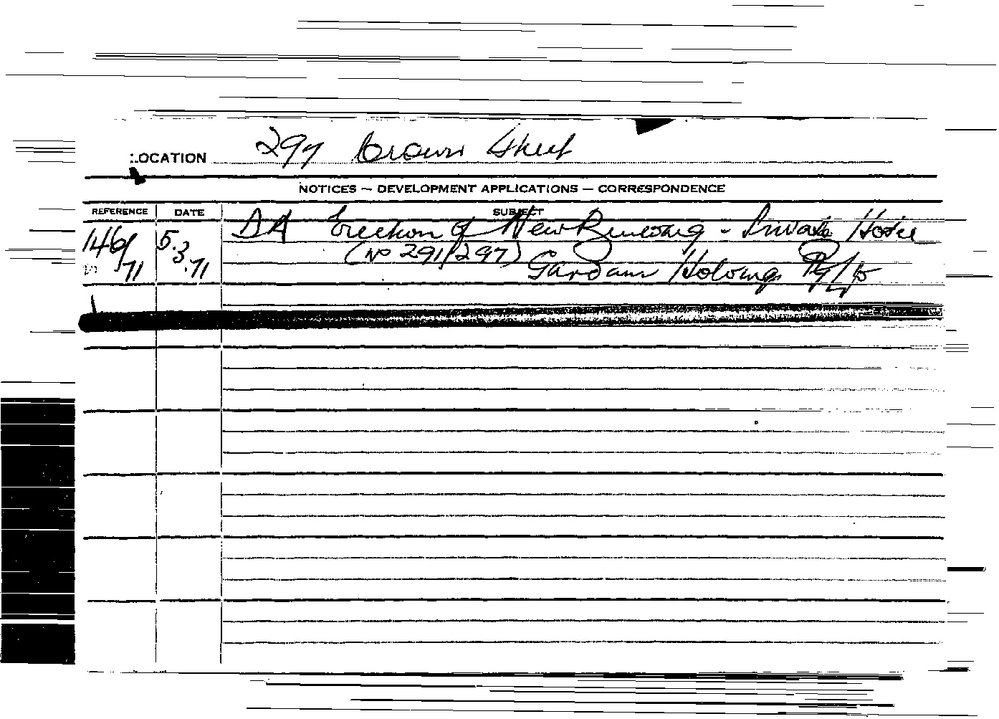 LOCATION 297 Crown Street
NOTICES — DEVELOPMENT APPLICATIONS — CORRESPONDENCE
REFERENCE DATE SUBJECT
146/71 5.3.71 DA Erection of New Building - Private Hotel
(No 291/297) Gardam Holdings P/L